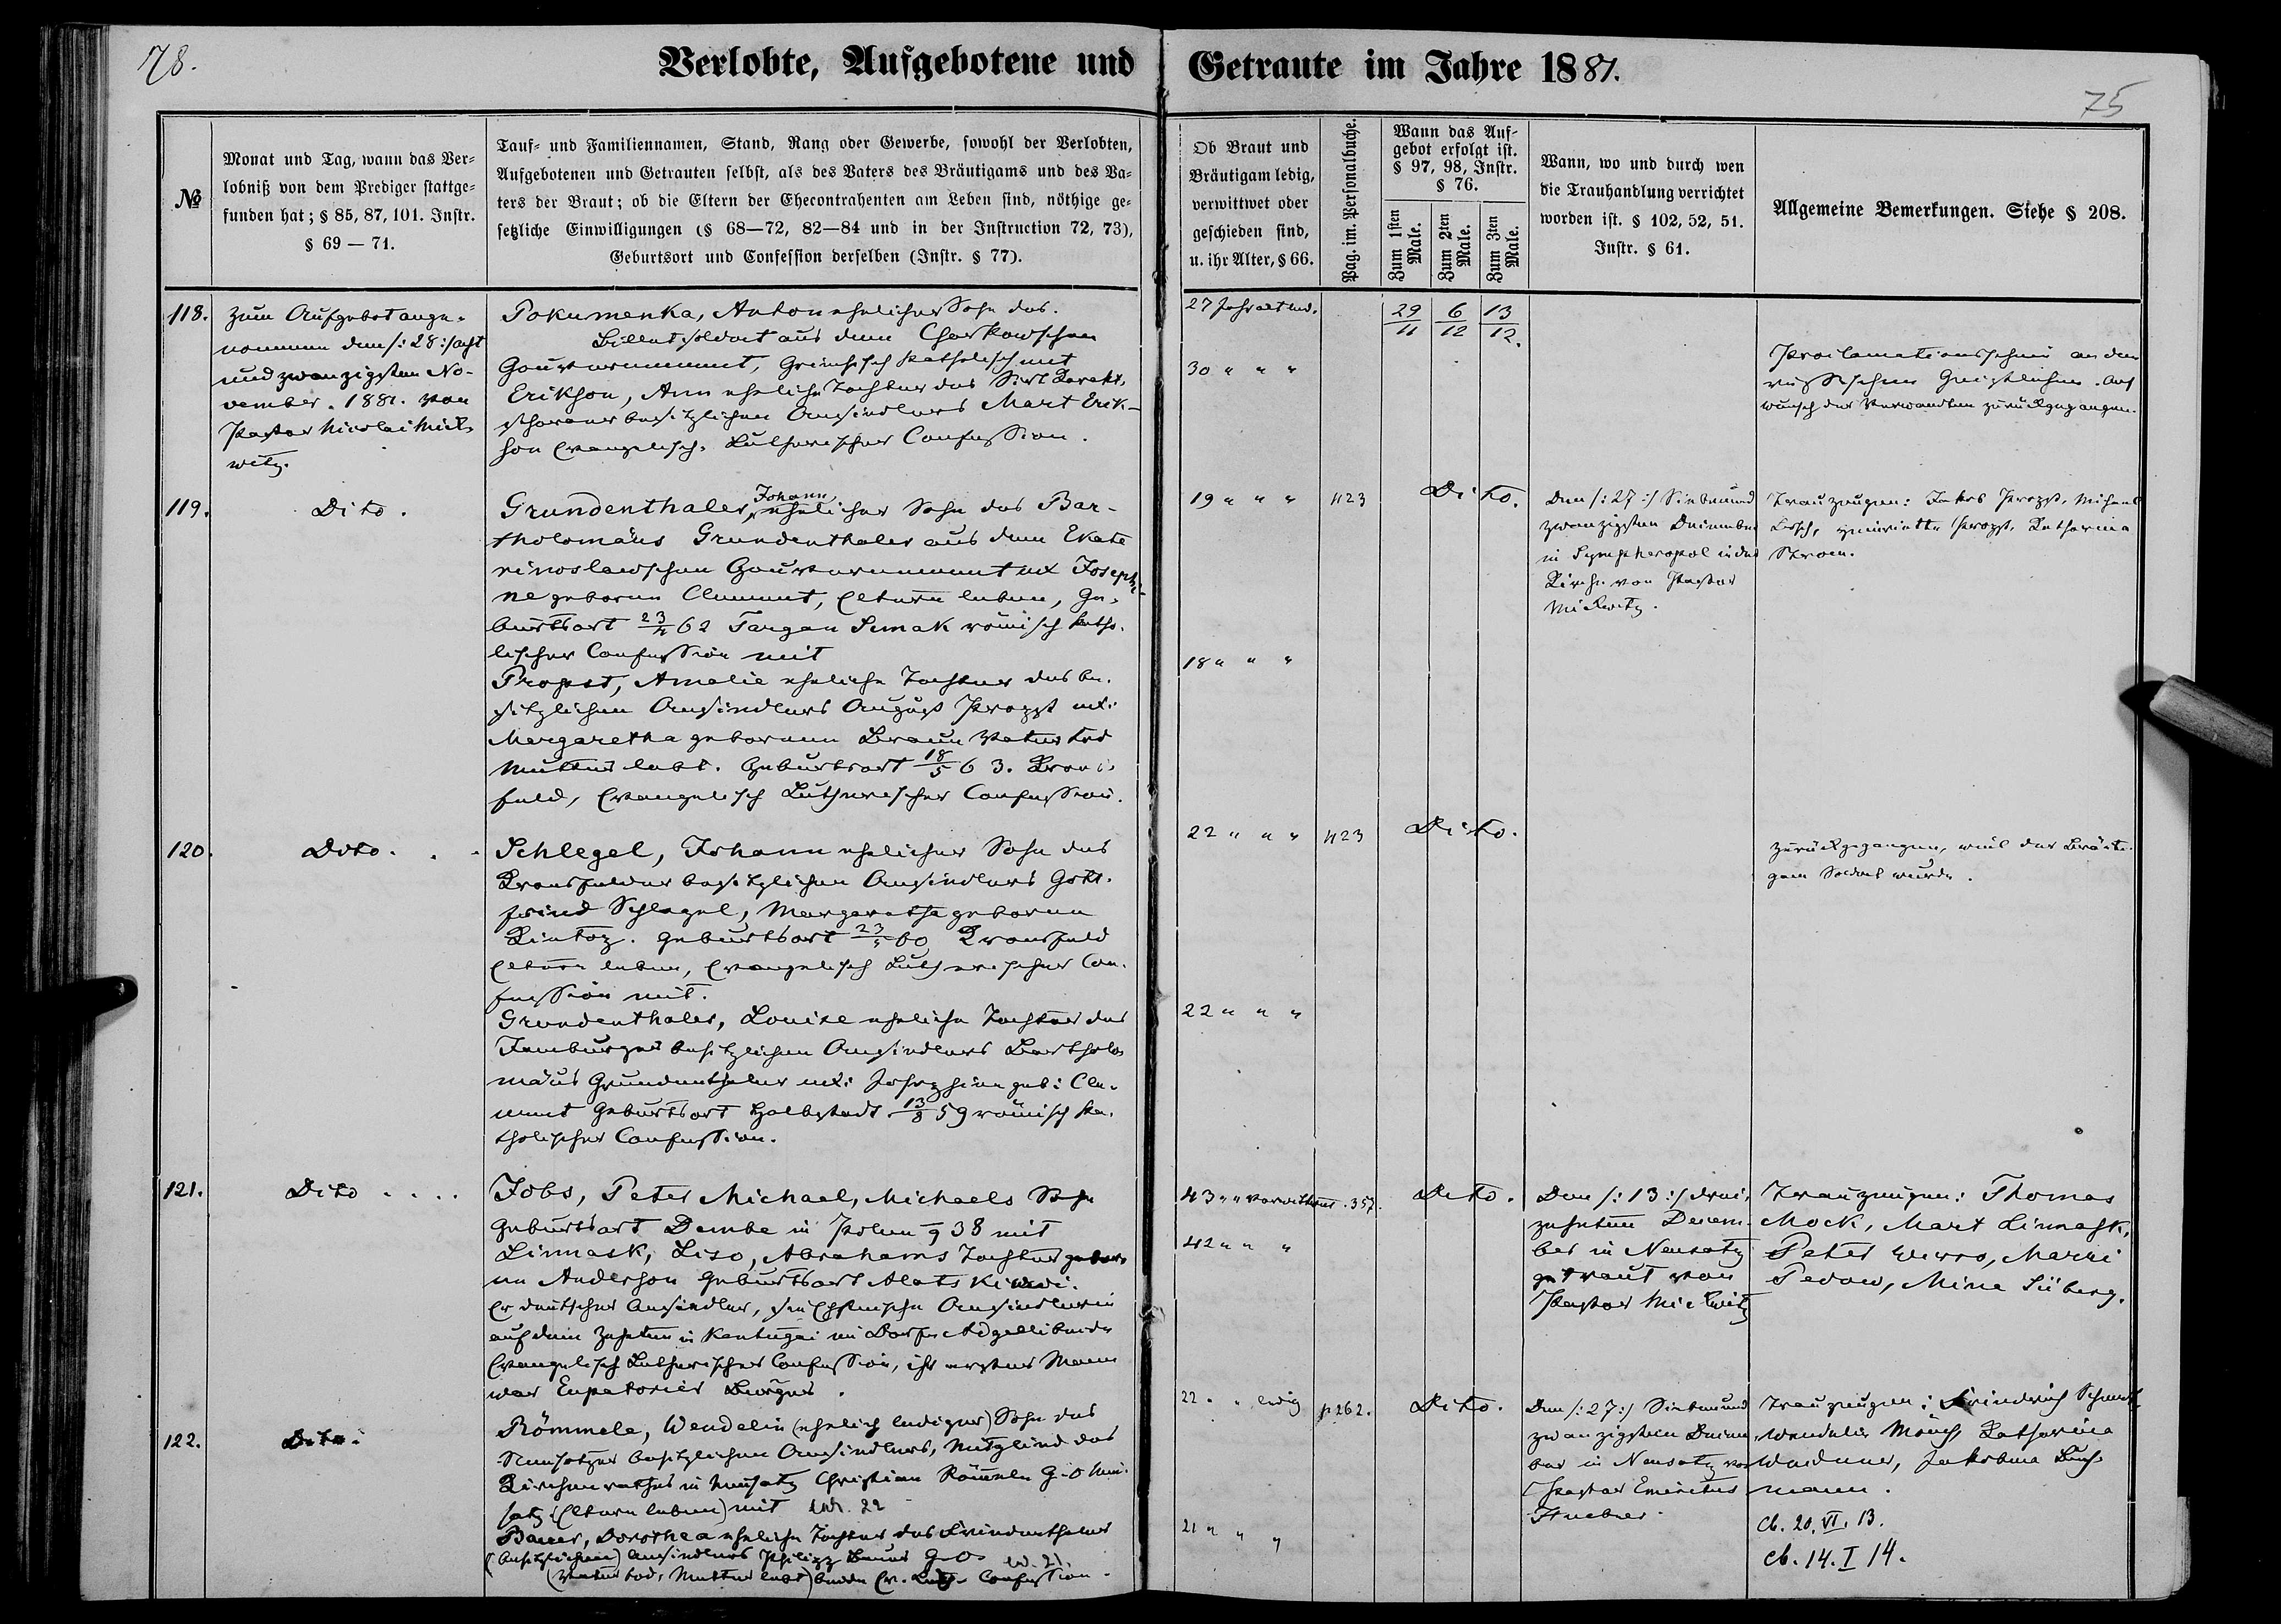 78.
Verlobte, Aufgebotene und Getraute im Jahre 1881.
75
№
Monat und Tag, wann das Ver-
lobniß von dem Prediger stattge-
funden hat; § 85, 87, 101. Instr.
§ 69 — 71.
Tauf- und Familiennamen, Stand, Rang oder Gewerbe, sowohl der Verlobten,
Aufgebotenen und Getrauten selbst, als des Vaters des Bräutigams und des Va-
ters der Braut; ob die Eltern der Ehecontrahenten am Leben sind, nöthige ge-
setzliche Einwilligungen (§ 68—72, 82—84 und in der Instruction 72, 73),
Geburtsort und Confession derselben (Instr. § 77).
Ob Braut und
Bräutigam ledig,
verwittwet oder
geschieden sind,
u. ihr Alter, § 66.
Pag. im. Personalbuche.
Wann das Auf-
gebot erfolgt ist.
§ 97, 98, Instr.
§ 76.
Zum 1sten Male.
Zum 2ten Male.
Zum 3ten Male.
Wann, wo und durch wen
die Trauhandlung verrichtet
worden ist. § 102, 52, 51.
Instr. § 61.
Allgemeine Bemerkungen. Siehe § 208.
118.
Zum Aufgebot ange-
nommen den /:28:/ acht
und zwanzigsten No-
vember. 1881. von
Pastor Nicolai Mick-
witz.
Pokumenka, Anton ehelicher Sohn des
Billetsoldat aus dem Charkowschen
Gouvernement, Griechisch katholisch mit
Erikson, Ann eheliche Tochter des
besitzlichen Ansiedlers Mart Erik-
son Evangelisch-Lutherischer Confession.
27 Jahr alt led.
30 " " "
29/11 6/12 13/12.
Proclamationsschein an den
russischen Geistlichen. Auf
Wunsch der Verwandten zurückgegangen.
119.
Dito.
Grundenthaler, Johann ehelicher Sohn des Bar-
tholomäus Grundenthaler aus dem Ekate
rinoslawschen Gouvernement ux Josephi-
ne geborene Clement, Eltern leben, Ge-
burtsort 23/4 62 Targan Simak römisch katho-
lischer Confession mit
Propst, Amalie eheliche Tochter des be-
sitzlichen Ansiedlers August Propst ux:
Margaretha geborenen Braun Vater tod
Mutter lebt. Geburtsort 18/5 63. Krons-
feld, Evangelisch Lutherischer Confession.
19 " " "
423
Dito.
18 " " "
Den /:27:/ Siebenund
zwanzigsten December
in Sympheropol in der
Kirche von Pastor
Mickwitz.
Trauzeugen: Jakob Propst, Michael
Lösch, Henriette Propst, Katharina
120.
Dito.
Schlegel, Johann ehelicher Sohn des
Kronsfelder besitzlichen Ansiedlers Gott-
fried Schlegel, Margaretha geborene
Geburtsort 60 Kronsfeld
Eltern leben, Evangelisch Lutherischer Con-
fession mit.
Grundenthaler, Louise eheliche Tochter des
Jamburger besitzlichen Ansiedlers Bartholo
mäus Grundenthaler ux: Josephine geb: Cle-
ment Geburtsort Halbstadt 13/8 59 römisch ka-
tholischer Confession.
22 " " "
423
Dito.
22 " " "
Zurückgegangen, weil der Bräuti-
gam Soldat wurde.
121.
Dito
Jobs, Peter Michael, Michaels Sohn
Geburtsort Dembe in Polen g 38 mit
Linnask, Liso, Abrahams Tochter gebore
ne Anderson Geburtsort Alats Kiwwi.
Er deutscher Ansiedler, sie Ehstnische Ansiedlerin
auf dem Zehnten in Kantugai im Dorfe Adgelli beide
Evangelisch Lutherischer Confession, ihr erster Mann
war Eupatorier Bürger.
43 " " verwittwet. 357.
42 " " "
Dito.
Den /:13:/ drei-
zehnten Decem-
ber in Neusatz
getraut von
Pastor Mickwitz
Trauzeugen: Thomas
Mock, Mart Linnask,
Peter Werro, Marri
Pedow, Mine Siiberg.
122.
Dito.
Römmele, Wendelin (ehelich lediger) Sohn des
Neusatzer besitzlichen Ansiedlers, Mitglied des
Kirchenrathes in Neusatz Christian Römmele G-O Neu-
satz (Eltern leben) mit led. 22
Bauer, Dorothea eheliche Tochter des Friedenthaler
(besitzlichen) Ansiedlers Philipp Bauer G-O led. 21.
(Vater tod, Mutter lebt) beide Ev. Luth. Confession.
22 " " ledig
p 262.
Dito.
21 " " "
Den /:27:/ Siebenund
zwanzigsten Decem-
ber in Neusatz von
Pastor Emeritus
Huebner.
Trauzeugen: Friedrich
Wendelin Mönch, Katharina
Weidner, Jakobina Buch-
mann.
cb. 20. VI. 13.
cb. 14. I 14.